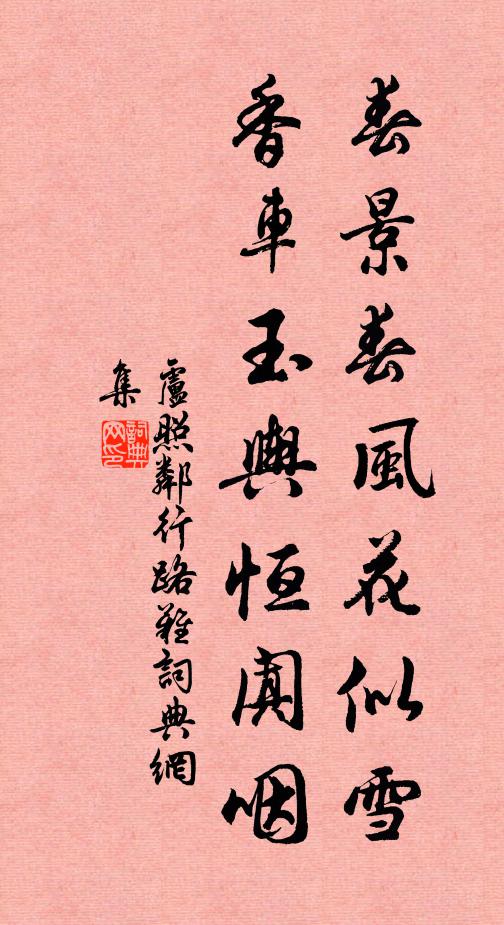 春景春風花似雪
香車玉輿恒闐咽
盧照鄰行路難詞典網
集
詞典網印